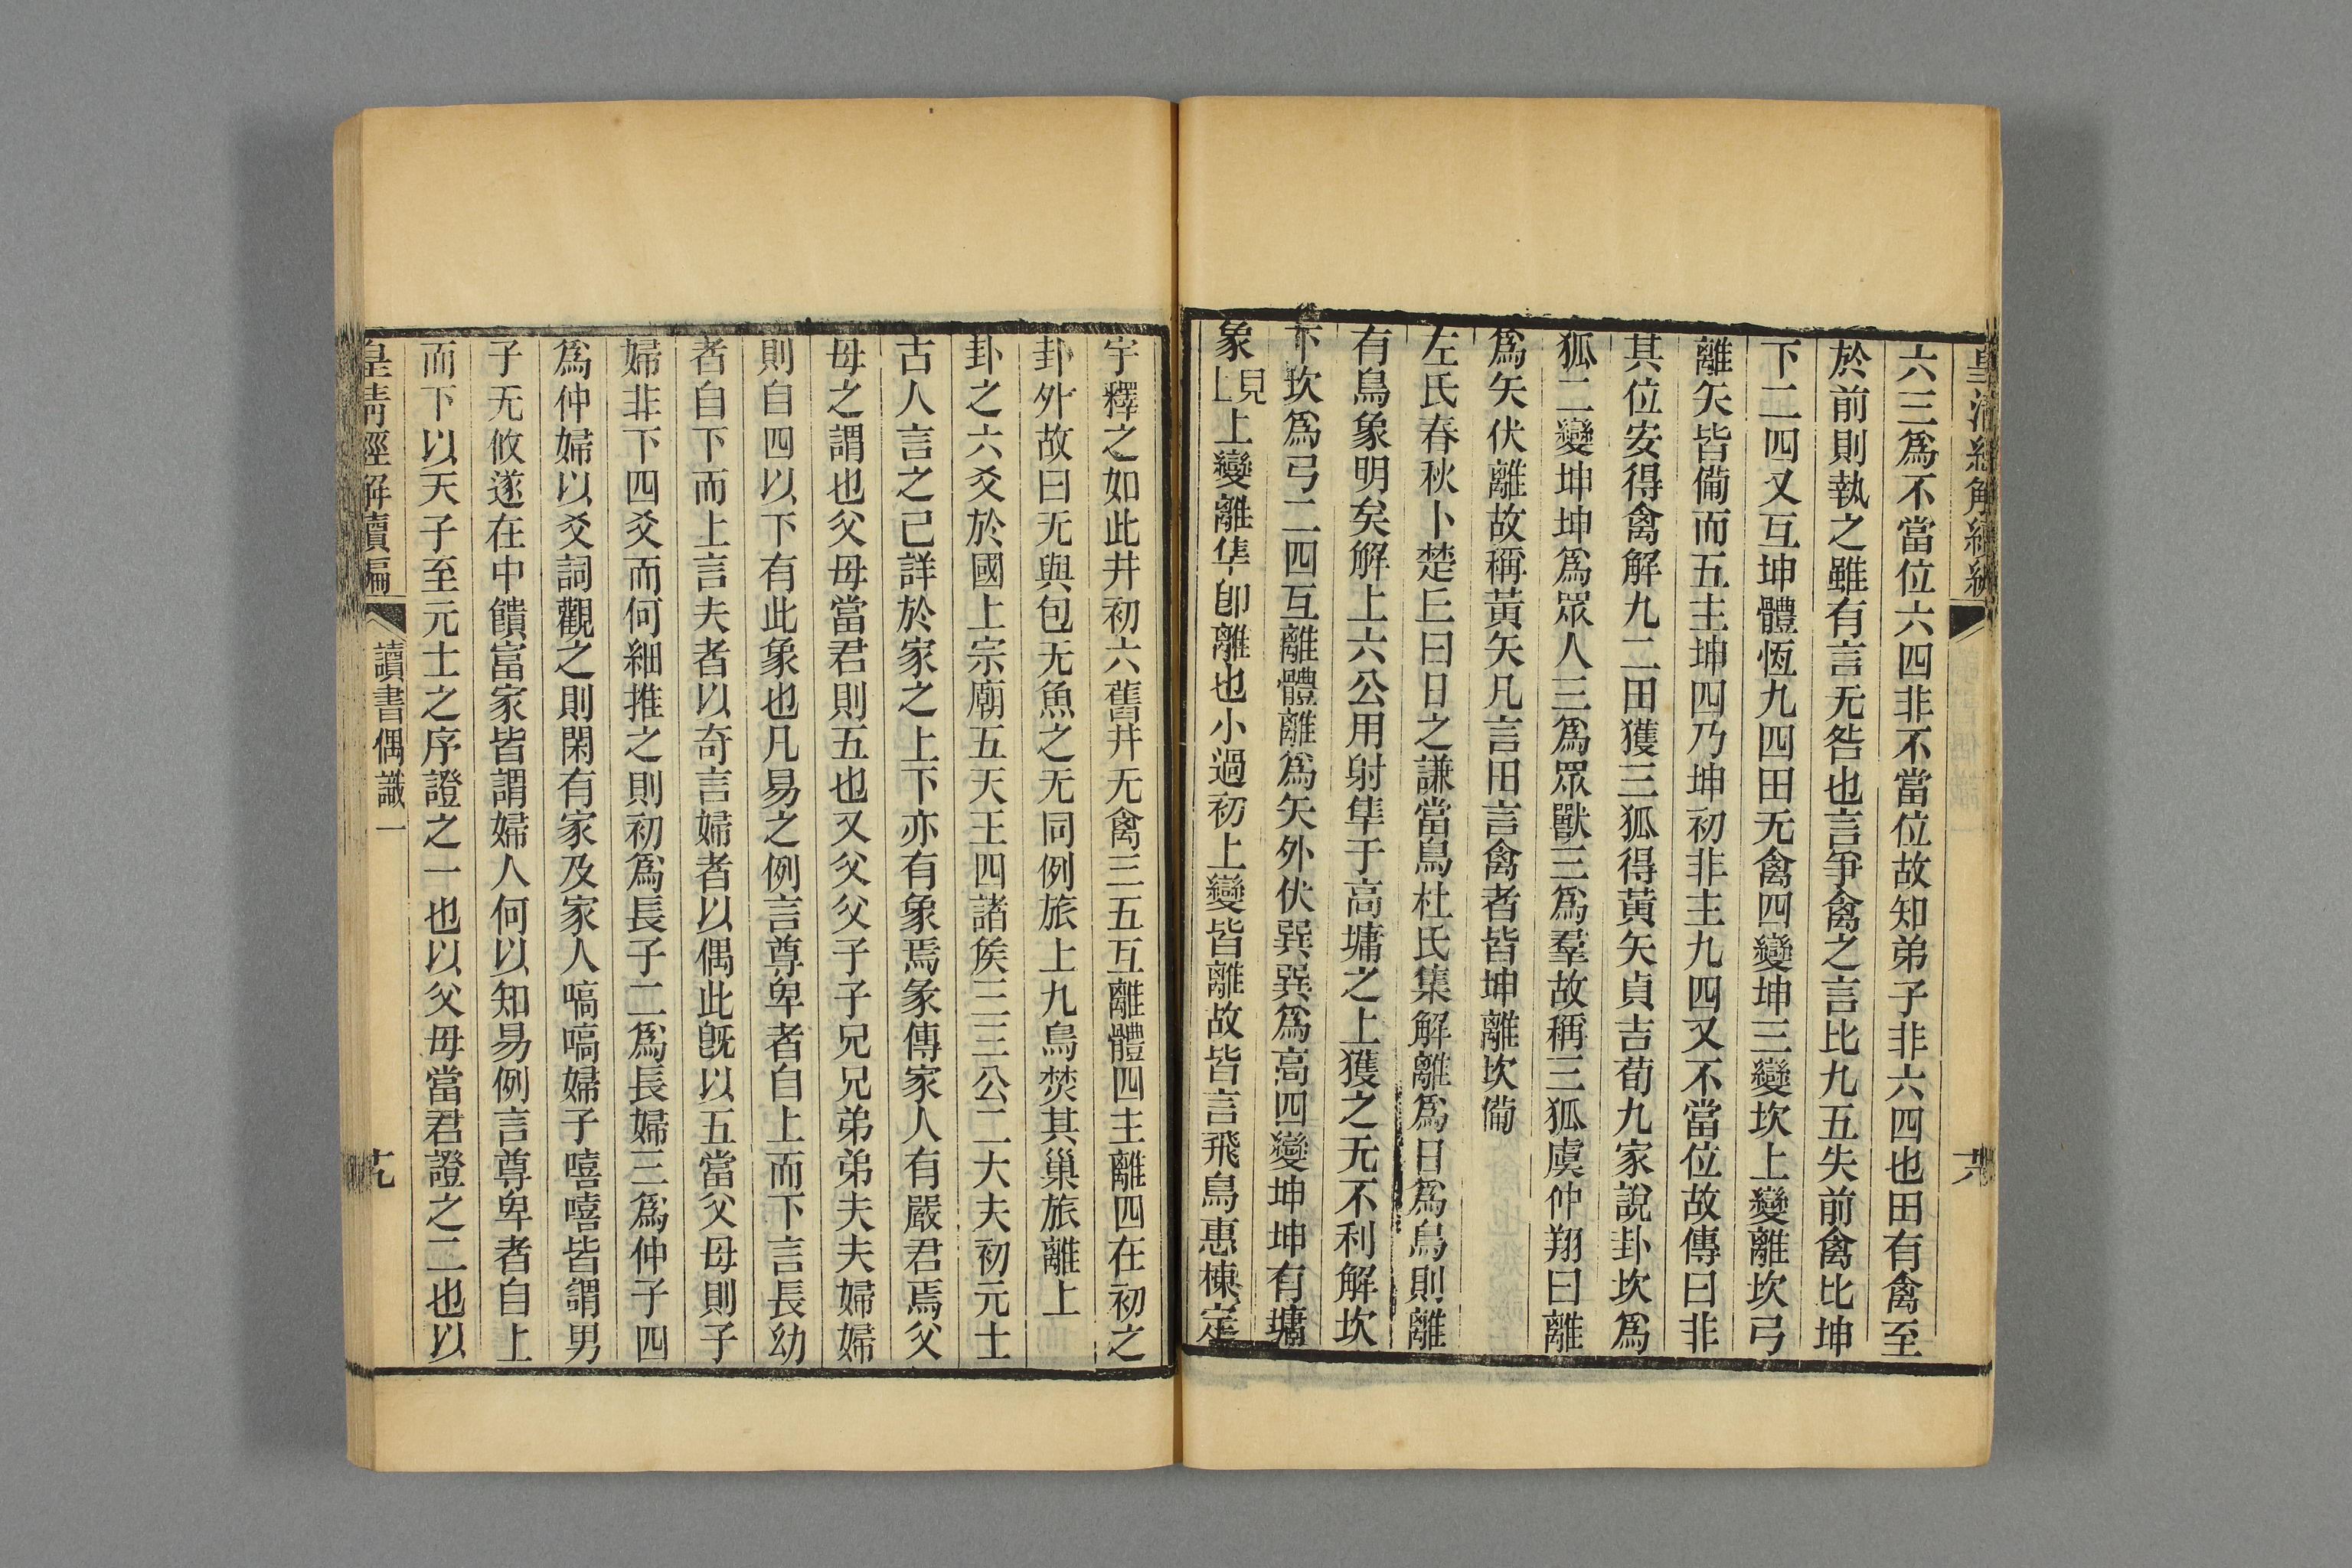 六三爲不當位六四非不當位故知弟子非六四也田有禽至
於前則執之雖有言无咎也言爭禽之言比九五失前禽比坤
下二四又互坤體恆九四田无禽四變坤三變坎上變離坎弓
離矢皆備而五主坤四乃坤初非主九四又不當位故傳曰非
其位安得禽解九二田獲三狐得黃矢貞吉荀九家說卦坎爲
狐二變坤坤爲眾人三爲眾獸三爲羣故稱三狐虞仲翔曰離
爲矢伏離故稱黃矢凡言田言禽者皆坤離坎備
左氏春秋卜楚丘曰日之謙當鳥杜氏集解離爲日爲鳥則離
有鳥象明矣解上六公用射隼于高墉之上獲之无不利解坎
下坎爲弓二四互離體離爲矢外伏巽巽爲高四變坤坤有墉
象見上上變離隼卽離也小過初上變皆離故皆言飛鳥惠棟定
宇釋之如此井初六舊井无禽三五互離體四主離四在初之
卦外故曰无與包无魚之无同例旅上九鳥焚其巢旅離上
卦之六爻於國上宗廟五天王四諸矦三三公二大夫初元士
古人言之已詳於家之上下亦有象焉彖傳家人有嚴君焉父
母之謂也父母當君則五也又父父子子兄兄弟弟夫夫婦婦
則自四以下有此象也凡易之例言尊卑者自上而下言長幼
者自下而上言夫者以奇言婦者以偶此旣以五當父母則子
婦非下四爻而何細推之則初爲長子二爲長婦三爲仲子四
爲仲婦以爻詞觀之則閑有家及家人嗃嗃婦子嘻嘻皆謂男
子无攸遂在中饋富家皆謂婦人何以知易例言尊卑者自上
而下以天子至元士之序證之一也以父母當君證之二也以
皇清經解續編
讀書偶識一